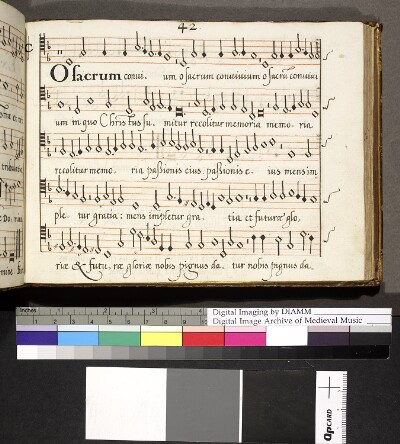 42
O sacrum convi. um o sacrum convivium o sacrũ conviui
um in quo Christus su. mitur recolitur memoria memo. ria
recolitur memo. ria passionis eius passionis e. ius mens im
ple. tur gratia: mens impletur gra. tia et futuræ glo,
riæ & futu, ræ gloriæ nobis pignus da. tur nobis pignus da.
inches 1 2 3 4
Digital Imaging by DIAMM
Digital Image Archive of Medieval Music
QPCARD